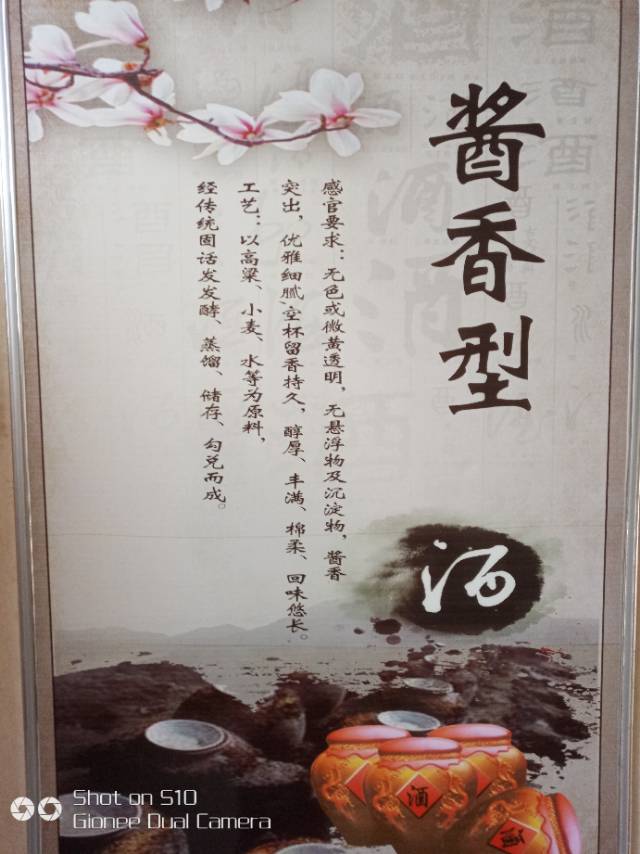 酱香型
酒
感官要求：无色或微黄透明，无悬浮物及沉淀物，酱香
突出，优雅细腻，空杯留香持久，醇厚、丰满、棉柔、回味悠长。
工艺：以高粱、小麦、水等为原料，
经传统固话发发酵、蒸馏、储存、勾兑而成。
酒
酒
Shot on S10
Gionee Dual Camera